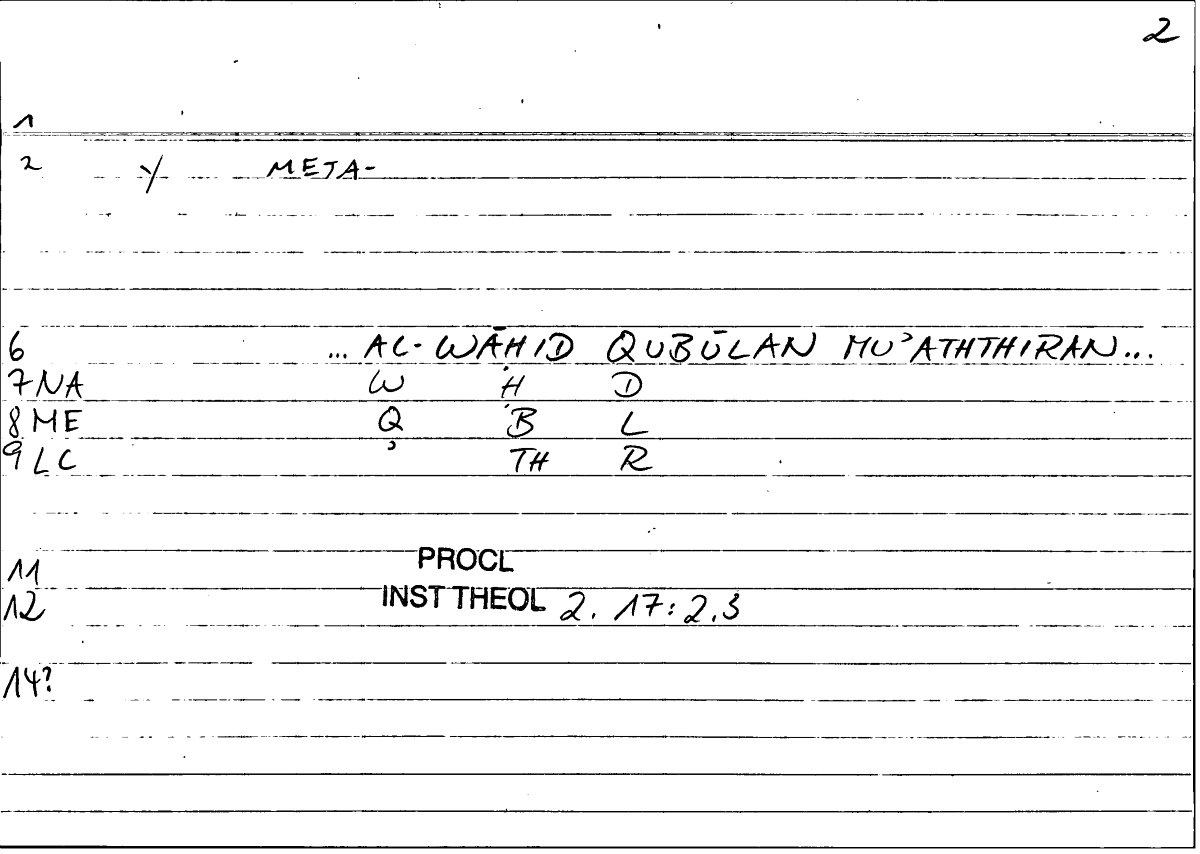 2
1
2 Y META-
6 ... AL-WĀḤID QUBŪLAN MU’ATHTHIRAN...
7 NA W Ḥ D
8 ME Q B L
9 LC ’ TH R
11 PROCL
12 INST THEOL 2. 17: 2.3
14?